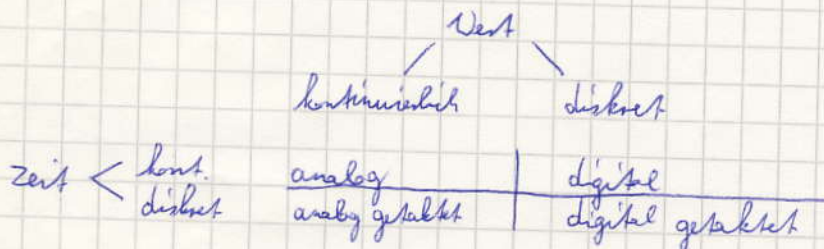 Wert
kontinuierlich diskret
Zeit < kont. analog digital
diskret analog getaktet digital getaktet